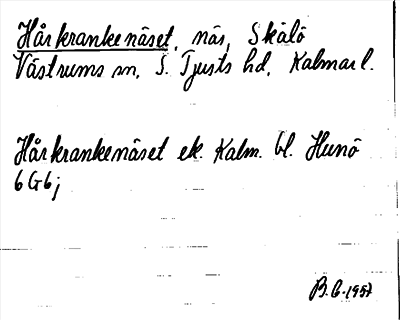 Hårkrankenäset, näs, Skälö
Västrums sn, S. Tjusts hd, Kalmar l.
Hårkrankenäset ek. Kalm. bl. Hunö
6G6j
B.G. 1957